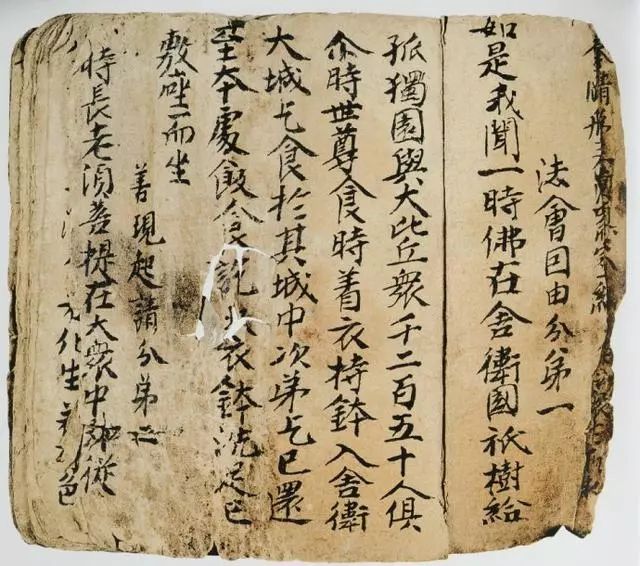 奉請
法會囙由分第一
如是我聞一時佛在舍衛國祇樹給
孤獨園與大比丘衆千二百五十人俱
尒時世尊食時着衣持鉢入舍衛
大城乞食於其城中次弟乞已還
至本處飯食訖衣鉢洗足已
敷座而坐
善現起請分第二
時長老湏菩提在大衆中即從
化生若色